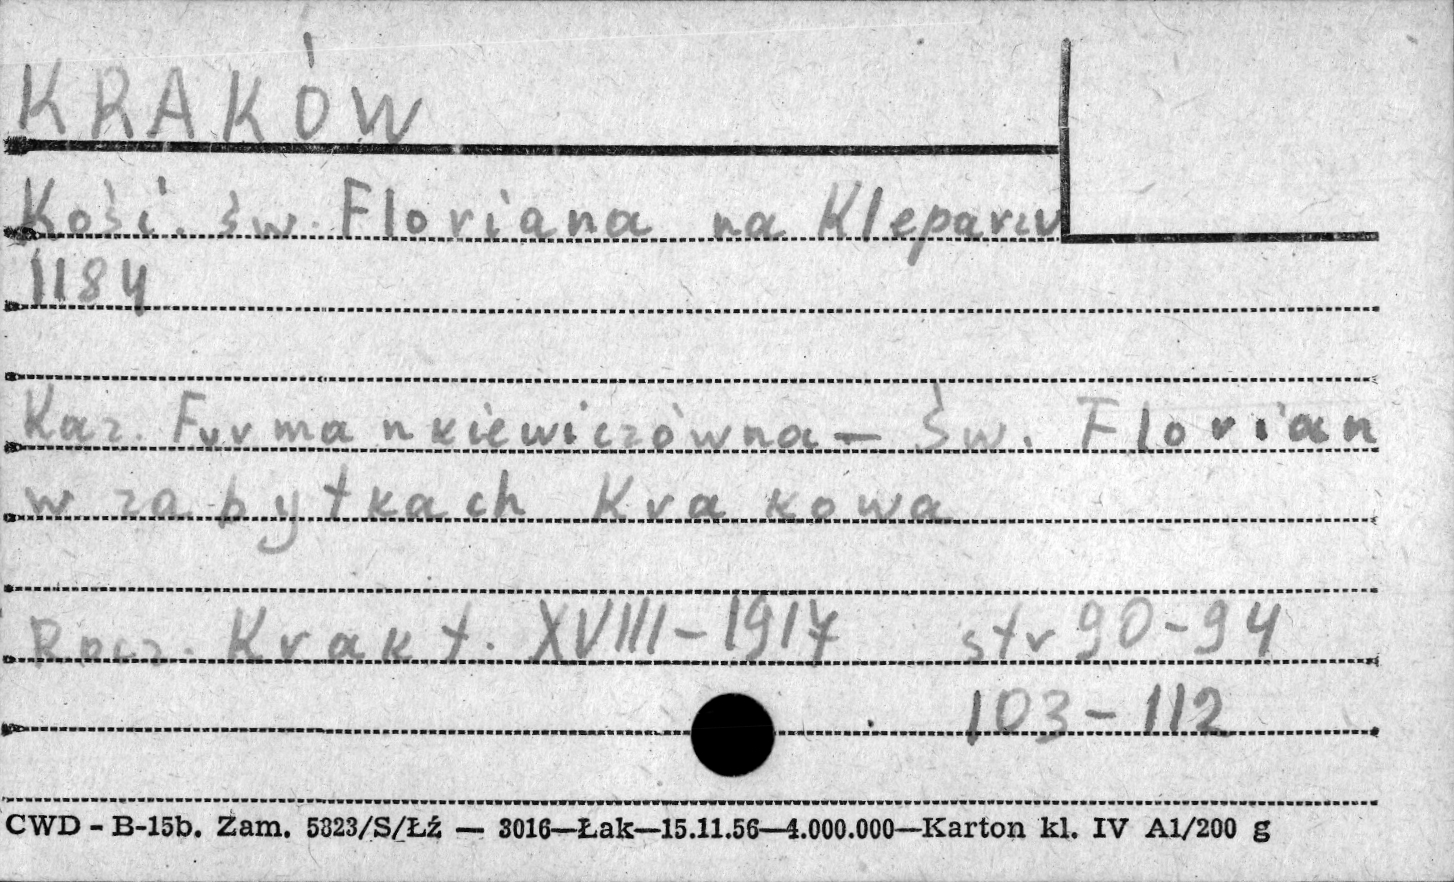 KRAKÓW
Kości. św. Floriana na Kleparzu
1184
Kaz. Furmankiewiczówna — Św. Florian
w zabytkach Krakowa
Rocz. Krak t. XVIII-1917 str 90-94
103-112
CWD - B-15b. Zam. 5323/S/Łź — 3016—Łak—15.11.56—4.000.000—Karton kl. IV A1/200 g